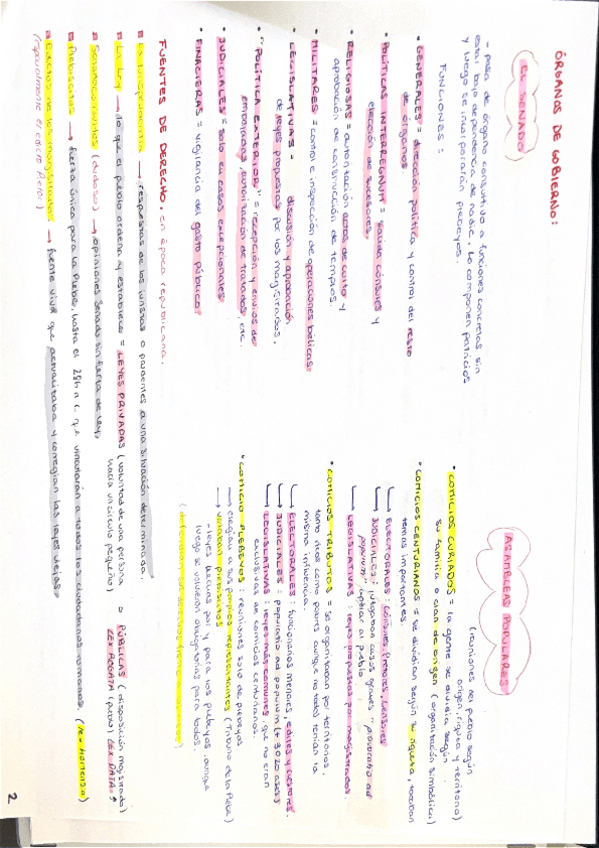 ÓRGANOS DE GOBIERNO:
EL SENADO
- pasa de órgano consultivo a funciones concretas sin
estar bajo dependencia de nadie. Lo componen patricios
y luego se incorporarán plebeyos.
FUNCIONES:
• GENERALES = dirección política y control del resto
de órganos
• POLÍTICAS INTERREGNUM = cónsules y
elección de sucesores.
• RELIGIOSAS = autorización actos de culto y
aprobación de construcción de templos.
• MILITARES = control e inspección de operaciones bélicas.
• LEGISLATIVAS = discusión y aprobación
de leyes propuestas por los magistrados.
• "POLÍTICA EXTERIOR" = recepción y envíos de
embajadas, autorización de tratados, etc.
• JUDICIALES = solo en casos excepcionales
• FINACIERAS = vigilancia del gasto público
ASAMBLEAS POPULARES
(reuniones del pueblo según
origen, riqueza y territorio)
• COMICIOS CURIADOS = la gente se dividía según
su familia o clan de origen (organización simbólica)
• COMICIOS CENTURIANOS = se dividían según su riqueza, trataban
temas importantes.
→ ELECTORALES: cónsules, Pretores, Censores
→ JUDICIALES: juzgaban casos graves "provocatio ad
populum" apelar al pueblo
→ LEGISLATIVAS: leyes propuestas por magistrados
• COMICIOS TRIBUTOS = se organizaban por territorios,
tanto ricos como pobres aunque no todos tenían la
misma influencia.
→ ELECTORALES: funcionarios menores, ediles y cuestores.
→ JUDICIALES: provocatio ad populum
→ LEGISLATIVAS: leyes más comunes, que no eran
exclusivas de comicios centurianos.
• COMICIO PLEBEYOS: reuniones solo de plebeyos
→ elegían a sus propios representantes (Tribuno de la Plebe)
→ votaban plebiscitos
- leyes hechas por y para los plebeyos, aunque
luego se volvieron obligatorias para todos.
FUENTES DE DERECHO, en época republicana.
La jurisprudencia → respuestas de los juristas o prudentes a una situación determinada.
La Ley → lo que el pueblo ordena y establece = LEYES PRIVADAS (voluntad de una persona o PÚBLICAS (disposición magistrado)
hacia un círculo pequeño) LEX ROGATA (pueblo) LEX DATA
Senadoconsultos (dudoso) → opiniones Senado sin fuerza de ley.
Plebiscitos → fuerza única para la Plebe, hasta el 286 a.C. que vinculaban a todos los ciudadanos romanos. (lex Hortensia)
Edictos de los magistrados → fuente viva que actualizaba y corregían las leyes viejas.
(especialmente el edicto Pretor)
2